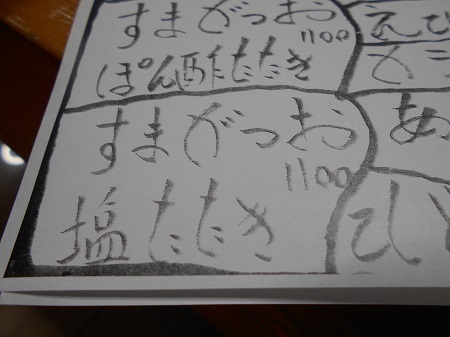 すまがつお
1100
ぽん酢たたき
すまがつお
1100
塩たたき